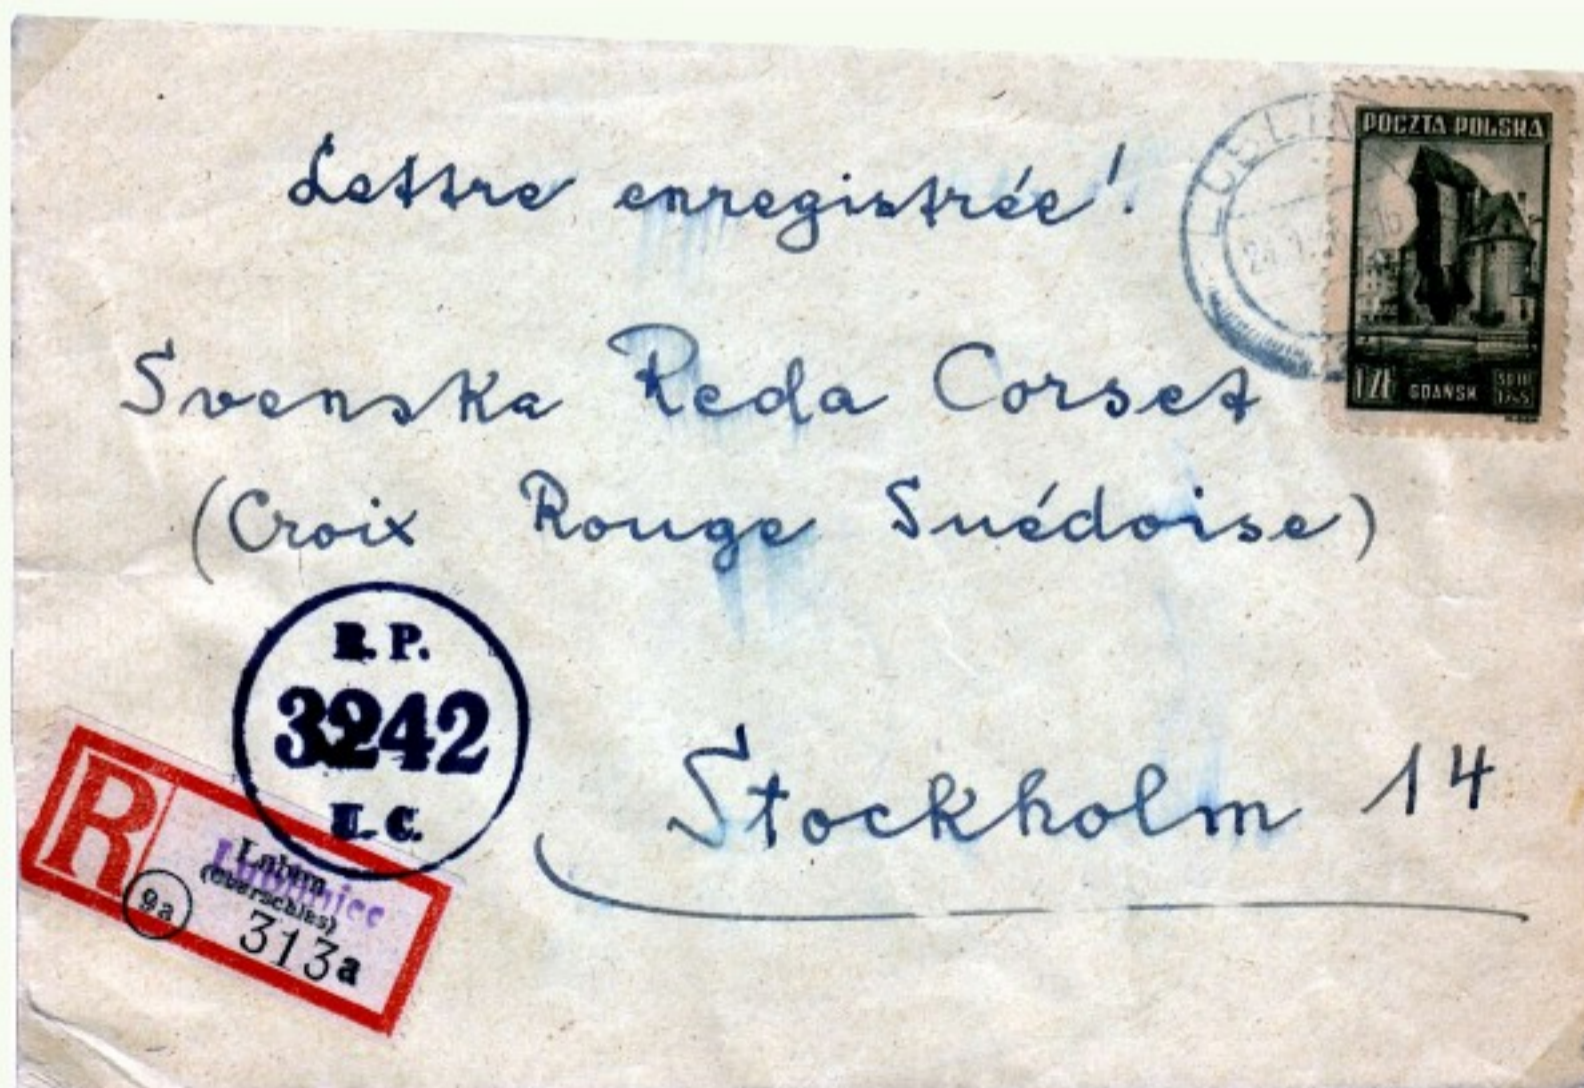 Lettre enregistrée!
POCZTA POLSKA
1 Zł GDAŃSK 30 III 1945
Svenska Reda Corset
(Croix Rouge Suédoise)
R. P.
3242
U. C.
Stockholm 14
R
(Oberschles)
9a
313a